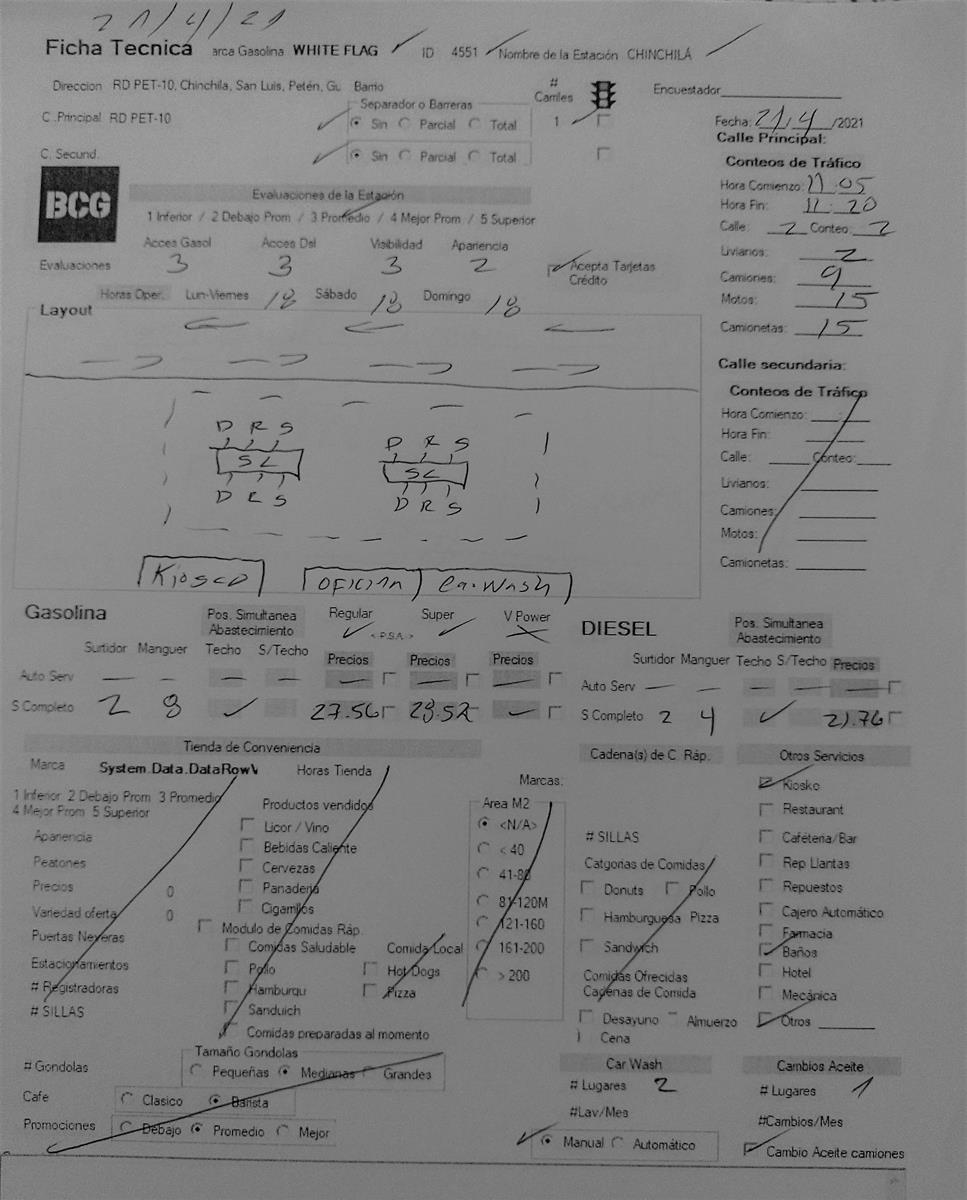 21/4/21
Ficha Tecnica arca Gasolina WHITE FLAG ID 4551 Nombre de la Estación CHINCHILÁ
Direccion RD PET-10, Chinchila, San Luis, Petén, Gu Barrio # Carriles Encuestador
C .Principal RD PET-10 Separador o Barreras
Sin Parcial Total 1 Fecha: 21/4/2021
C. Secund. Sin Parcial Total
Calle Principal:
Conteos de Tráfico
BCG
Evaluaciones de la Estación
1 Inferior / 2 Debajo Prom / 3 Promedio / 4 Mejor Prom / 5 Superior
Acces Gasol Acces Dsl Visibilidad Apariencia
Evaluaciones 3 3 3 2 Acepta Tarjetas Crédito
Horas Oper. Lun-Viernes 18 Sábado 18 Domingo 18
Hora Comienzo: 11:05
Hora Fin: 11:20
Calle: 2 Conteo: 2
Livianos: 2
Camiones: 9
Motos: 15
Camionetas: 15
Calle secundaria:
Conteos de Tráfico
Hora Comienzo: :
Hora Fin:
Calle: Conteo:
Livianos:
Camiones:
Motos:
Camionetas:
Layout
D R S D R S
SC SC
D R S D R S
Kiosco OFICINA Ca.Wash
Gasolina Pos. Simultanea Abastecimiento Regular Super V Power
<P.S.A.>
Surtidor Manguer Techo S/Techo Precios Precios Precios
Auto Serv — — — — — — —
S Completo 2 8 27.56 28.52 —
DIESEL Pos. Simultanea Abastecimiento
Surtidor Manguer Techo S/Techo Precios
Auto Serv — — — — —
S Completo 2 4 21.76
Tienda de Conveniencia
Marca System.Data.DataRowV Horas Tienda
1 Inferior 2 Debajo Prom 3 Promedio
4 Mejor Prom 5 Superior
Apariencia
Peatones
Precios 0
Variedad oferta 0
Puertas Neveras
Estacionamientos
# Registradoras
# SILLAS
Productos vendidos
Licor / Vino
Bebidas Caliente
Cervezas
Panaderia
Cigarrillos
Modulo de Comidas Ráp.
Comidas Saludable Comida Local
Pollo Hot Dogs
Hamburgu Pizza
Sanduich
Comidas preparadas al momento
Marcas:
Area M2
<N/A>
< 40
41-80
81-120M
121-160
161-200
> 200
# Gondolas
Tamaño Gondolas
Pequeñas Medianas Grandes
Cafe Clasico Barista
Promociones Debajo Promedio Mejor
Cadena(s) de C. Ráp.
# SILLAS
Catgorias de Comidas
Donuts Pollo
Hamburguesa Pizza
Sandwich
Comidas Ofrecidas
Cadenas de Comida
Desayuno Almuerzo
Cena
Otros Servicios
Kiosko
Restaurant
Caféteria/Bar
Rep Llantas
Repuestos
Cajero Automático
Farmacia
Baños
Hotel
Mecánica
Otros
Car Wash
# Lugares 2
#Lav/Mes
Manual Automático
Cambios Aceite
# Lugares 1
#Cambios/Mes
Cambio Aceite camiones